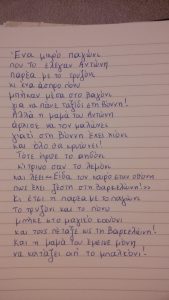 Ένα μικρό παγώνι
που το έλεγαν Αντώνη
παρέα με το τρυγόνι
κι ένα άσπρο πόνυ
μπήκαν μέσα στο βαγόνι
για να πάνε ταξίδι στη Βόννη!
Αλλά η μαμά του Αντώνη
άρχισε να τον μαλώνει
γιατί στη Βόννη έχει χιόνι
και όλο θα κρυώνει!
Τότε ήρθε το αηδόνι
κίτρινο σαν το λεμόνι
και λέει «Είδα τον καιρό στην οθόνη
πως έχει ζέστη στη Βαρκελώνη!»
Κι έτσι η παρέα με το παγώνι
το τρυγόνι και το πόνυ
μπήκε στο μαγικό κανόνι
και τους πέταξε ως τη Βαρκελώνη!
Και η μαμά του έμεινε μόνη
να κοιτάζει από το μπαλκόνι!